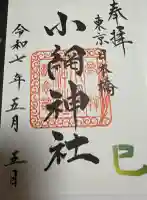 奉拝
東京日本橋
小網神社
令和七年五月五日
巳